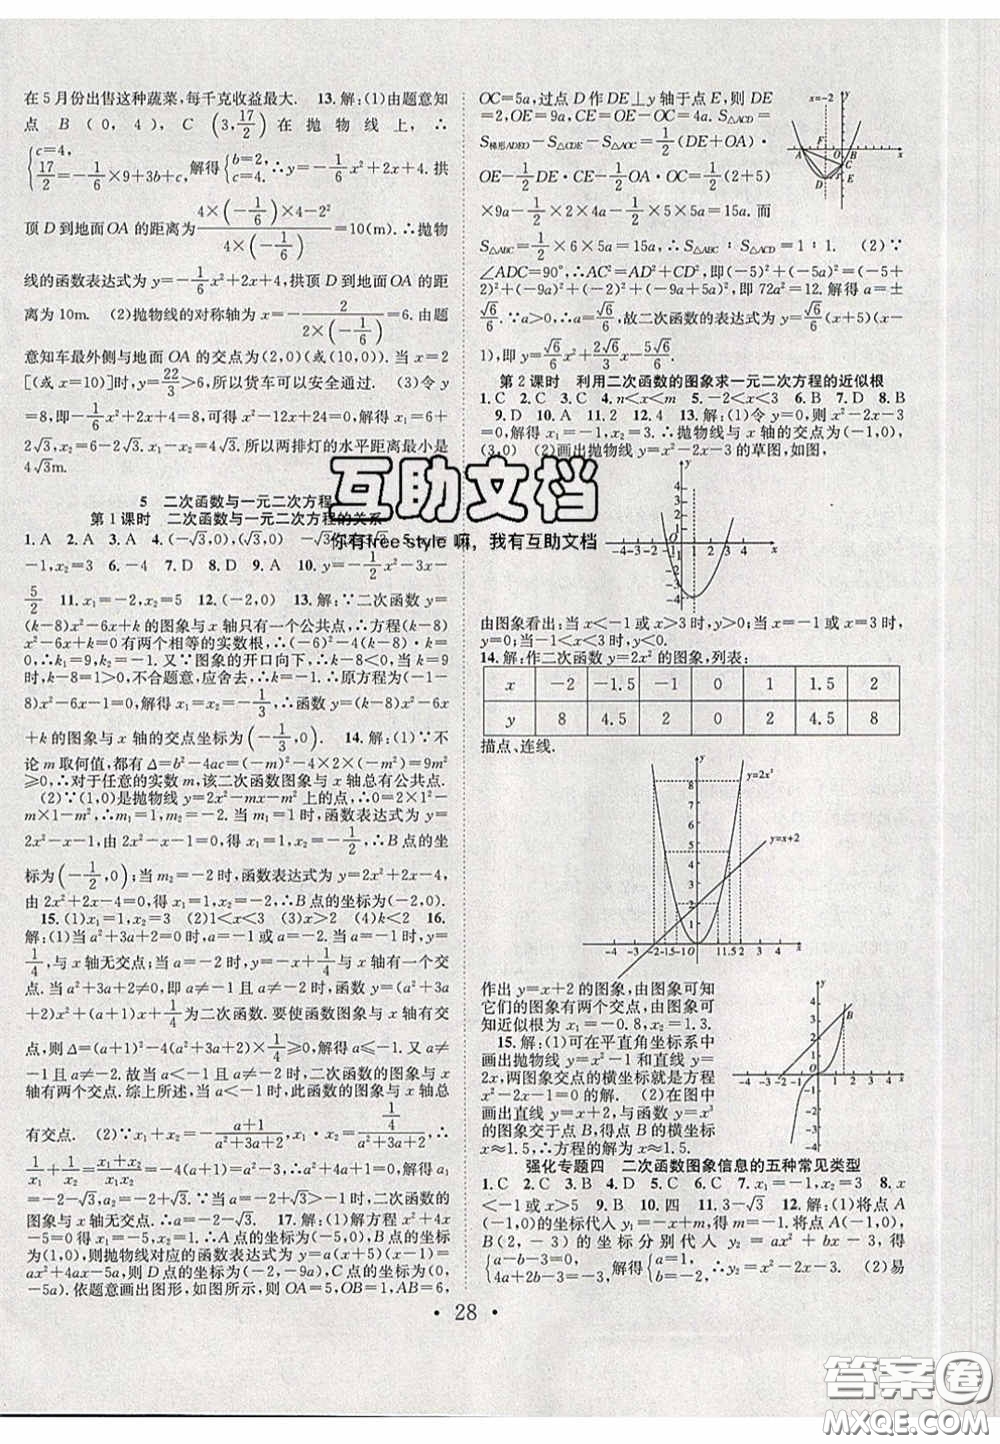 在5月份出售这种蔬菜,每千克收益最大. 13.解:(1)由题意知
点 B (0, 4), C (3, 17/2) 在 抛 物 线 上, ∴
{c=4, 17/2=-1/6×9+3b+c, 解得{b=2, c=4. ∴y=-1/6x²+2x+4. 拱
顶 D 到地面 OA 的距离为 (4×(-1/6)×4-2²)/(4×(-1/6)) =10(m). ∴抛物
线的函数表达式为 y=-1/6x²+2x+4,拱顶 D 到地面 OA 的距
离为 10m. (2)抛物线的对称轴为 x=-2/(2×(-1/6))=6. 由题
意知车最外侧与地面 OA 的交点为(2,0)(或(10,0)). 当 x=2
[(或 x=10)]时,y=22/3>6,所以货车可以安全通过. (3)令 y
=8,即-1/6x²+2x+4=8,可得 x²-12x+24=0,解得 x₁=6+
2√3,x₂=6-2√3. x₁-x₂=4√3. 所以两排灯的水平距离最小是
4√3m.
5 二次函数与一元二次方程
第1课时 二次函数与一元二次方程的关系
1. A 2. A 3. A 4. (-√3,0),(√3,0) -√3
-1,x₂=3 6. -4 7. D 8. D 9. A 10. y=-1/2x²-3x-
5/2 11. x₁=-2,x₂=5 12. (-2,0) 13. 解:∵二次函数 y=
(k-8)x²-6x+k 的图象与 x 轴只有一个公共点,∴方程(k-8)
x²-6x+k=0 有两个相等的实数根,∴(-6)²-4(k-8)·k=
0,∴k₁=9,k₂=-1. 又∵图象的开口向下,∴k-8<0,当 k=9
时,k-8=9-8=1>0,不合题意,应舍去,∴k=-1,∴原方程为(-1-
8)x²-6x-1=0,解得 x₁=x₂=-1/3,∴函数 y=(k-8)x²-6x
+k 的图象与 x 轴的交点坐标为(-1/3,0). 14. 解:(1)∵不
论 m 取何值,都有 Δ=b²-4ac=(-m)²-4×2×(-m²)=9m²
≥0,∴对于任意的实数 m,该二次函数图象与 x 轴总有公共点.
(2)∵(1,0)是抛物线 y=2x²-mx-m² 上的点,∴0=2×1²-
m×1-m²,∴m₁=1,m₂=-2. 当 m₁=1 时,函数表达式为 y=
2x²-x-1,由 2x²-x-1=0,得 x₁=1,x₂=-1/2,∴B 点的坐
标为(-1/2,0);当 m₂=-2 时,函数表达式为 y=2x²+2x-4,
由 2x²+2x-4=0,得 x₁=1,x₂=-2,∴B 点的坐标为(-2,0)
15. (1)x₁=1,x₂=3 (2)1<x<3 (3)x>2 (4)k<2 16.
解:(1)当 a²+3a+2=0 时,a=-1 或 a=-2. 当 a=-1 时,y=
1/4,与 x 轴无交点;当 a=-2 时,y=-x+1/4,与 x 轴有交点,坐
标是(1/4,0). 当 a²+3a+2≠0,即 a≠-1 且 a≠-2 时,y=(a²+3a
+2)x²+(a+1)x+1/4为二次函数. 要使函数图象与 x 轴有交
点,则 Δ=(a+1)²-4(a²+3a+2)×1/4≥0,解得 a≤-1. 又 a≠
-1 且 a≠-2,∴a<-1 且 a≠-2. 故当 a<-1 时,图象与 x
轴有两个交点. 综上所述,当 a<-1 时,此函数的图象与 x 轴总
有交点. (2)∵x₁+x₂=-(a+1)/(a²+3a+2),x₁x₂=(1/4)/(a²+3a+2),
1/x₁+1/x₂=(x₁+x₂)/(x₁x₂)=a²-3,∴a=-2±√3. 当 a=-2+√3时,函数
的图象与 x 轴无交点. ∴a=-2-√3. 17. 解:(1)解方程 x²+4x
-5=0 得 x₁=-5,x₂=1,A 点的坐标为(-5,0),B 点的坐标
为(1,0),则抛物线对应的函数表达式为 y=a(x+5)(x-1)=
ax²+4ax-5a,则 D 点的坐标为(-2,-9a),C 点的坐标为(0,
-5a). 依题意画出图形,如图所示,则 OA=5,OB=1,AB=6,
OC=5a,过点 D 作 DE⊥y 轴于点 E,则 DE
=2,OE=9a,CE=OE-OC=4a. S△ACD=
S梯形ADEO-S△CDE-S△AOC=1/2(DE+OA)·
OE-1/2DE·CE-1/2OA·OC=1/2(2+5)
×9a-1/2×2×4a-1/2×5×5a=15a. 而
S△ABC=1/2×6×5a=15a,∴S△ABC∶S△ACD=1∶1. (2)∵
∠ADC=90°,∴AC²=AD²+CD²,即(-5)²+(-5a)²=(-5+
2)²+(-9a)²+(-2)²+(-9a+5a)²,即 72a²=12. 解得 a=±
√6/6. ∵a>0,∴a=√6/6,故二次函数的表达式为 y=√6/6(x+5)(x-
1),即 y=√6/6x²+2√6/3x-5√6/6.
第2课时 利用二次函数的图象求一元二次方程的近似根
1. C 2. C 3. C 4. n<x<m 5. -2<x<3 6. B 7. D 8. B
9. D 10. A 11. 2 12. 4 13. 解:(1)令 y=0,则 x²-2x-3=
0,解得 x₁=-1,x₂=3. ∴抛物线与 x 轴的交点为(-1,0),
(3,0) (2)画出抛物线 y=x²-2x-3 的草图,如图,
由图象看出:当 x<-1 或 x>3 时,y>0;当 x=-1 或 x=3 时,
y=0;当-1<x<3 时,y<0.
14. 解:作二次函数 y=2x² 的图象,列表:
x -2 -1.5 -1 0 1 1.5 2
y 8 4.5 2 0 2 4.5 8
描点、连线.
y=2x²
y=x+2
作出 y=x+2 的图象,由图象可知
它们的图象有两个交点,由图象可
知近似根为 x₁=-0.8,x₂=1.3.
15. 解:(1)可在平直角坐标系中
画出抛物线 y=x²-1 和直线 y=
2x,两图象交点的横坐标就是方程
x²-2x-1=0 的解. (2)在图中
画出直线 y=x+2,与函数 y=x³
的图象交于点 B,得点 B 的横坐标
x≈1.5,∴方程的解为 x≈1.5.
强化专题四 二次函数图象信息的五种常见类型
1. C 2. C 3. B 4. D 5. D 6. C 7. x₁=-1,x₂=3 8. x
<-1 或 x>5 9. B 10. 四 11. 3-√3 12. 解:(1)将点 A
(-1,0)的坐标代入 y₁=-x+m,得 m=-1. 将点 A(-1,0),
B(2,-3)的坐标分别代入 y₂=ax²+bx-3,得
{a-b-3=0, 4a+2b-3=-3, 解得{a=1, b=-2, ∴y₂=x²-2x-3. (2)易
· 28 ·
互助文档
你有free style 嘛，我有互助文档
答案圈
MXQE.COM